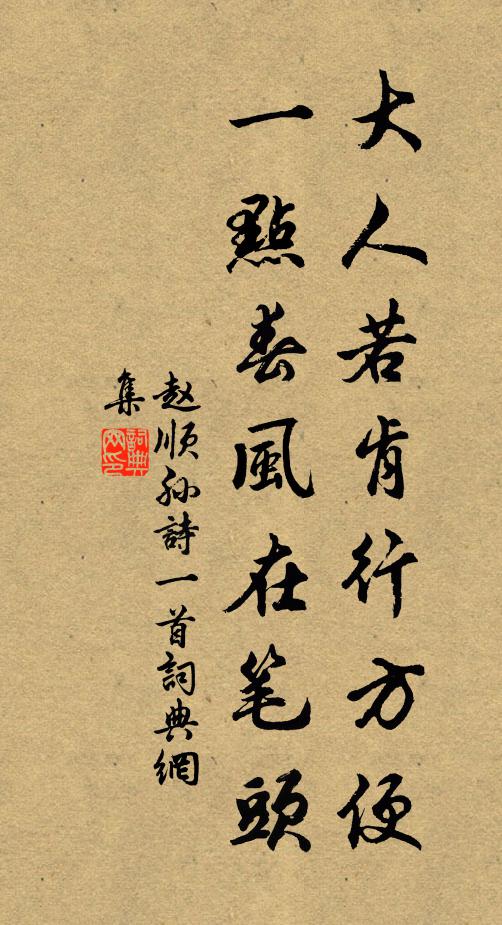 大人若肯行方便
一點春風在笔頭
赵順孙詩一首詞典網
集
詞典
网印